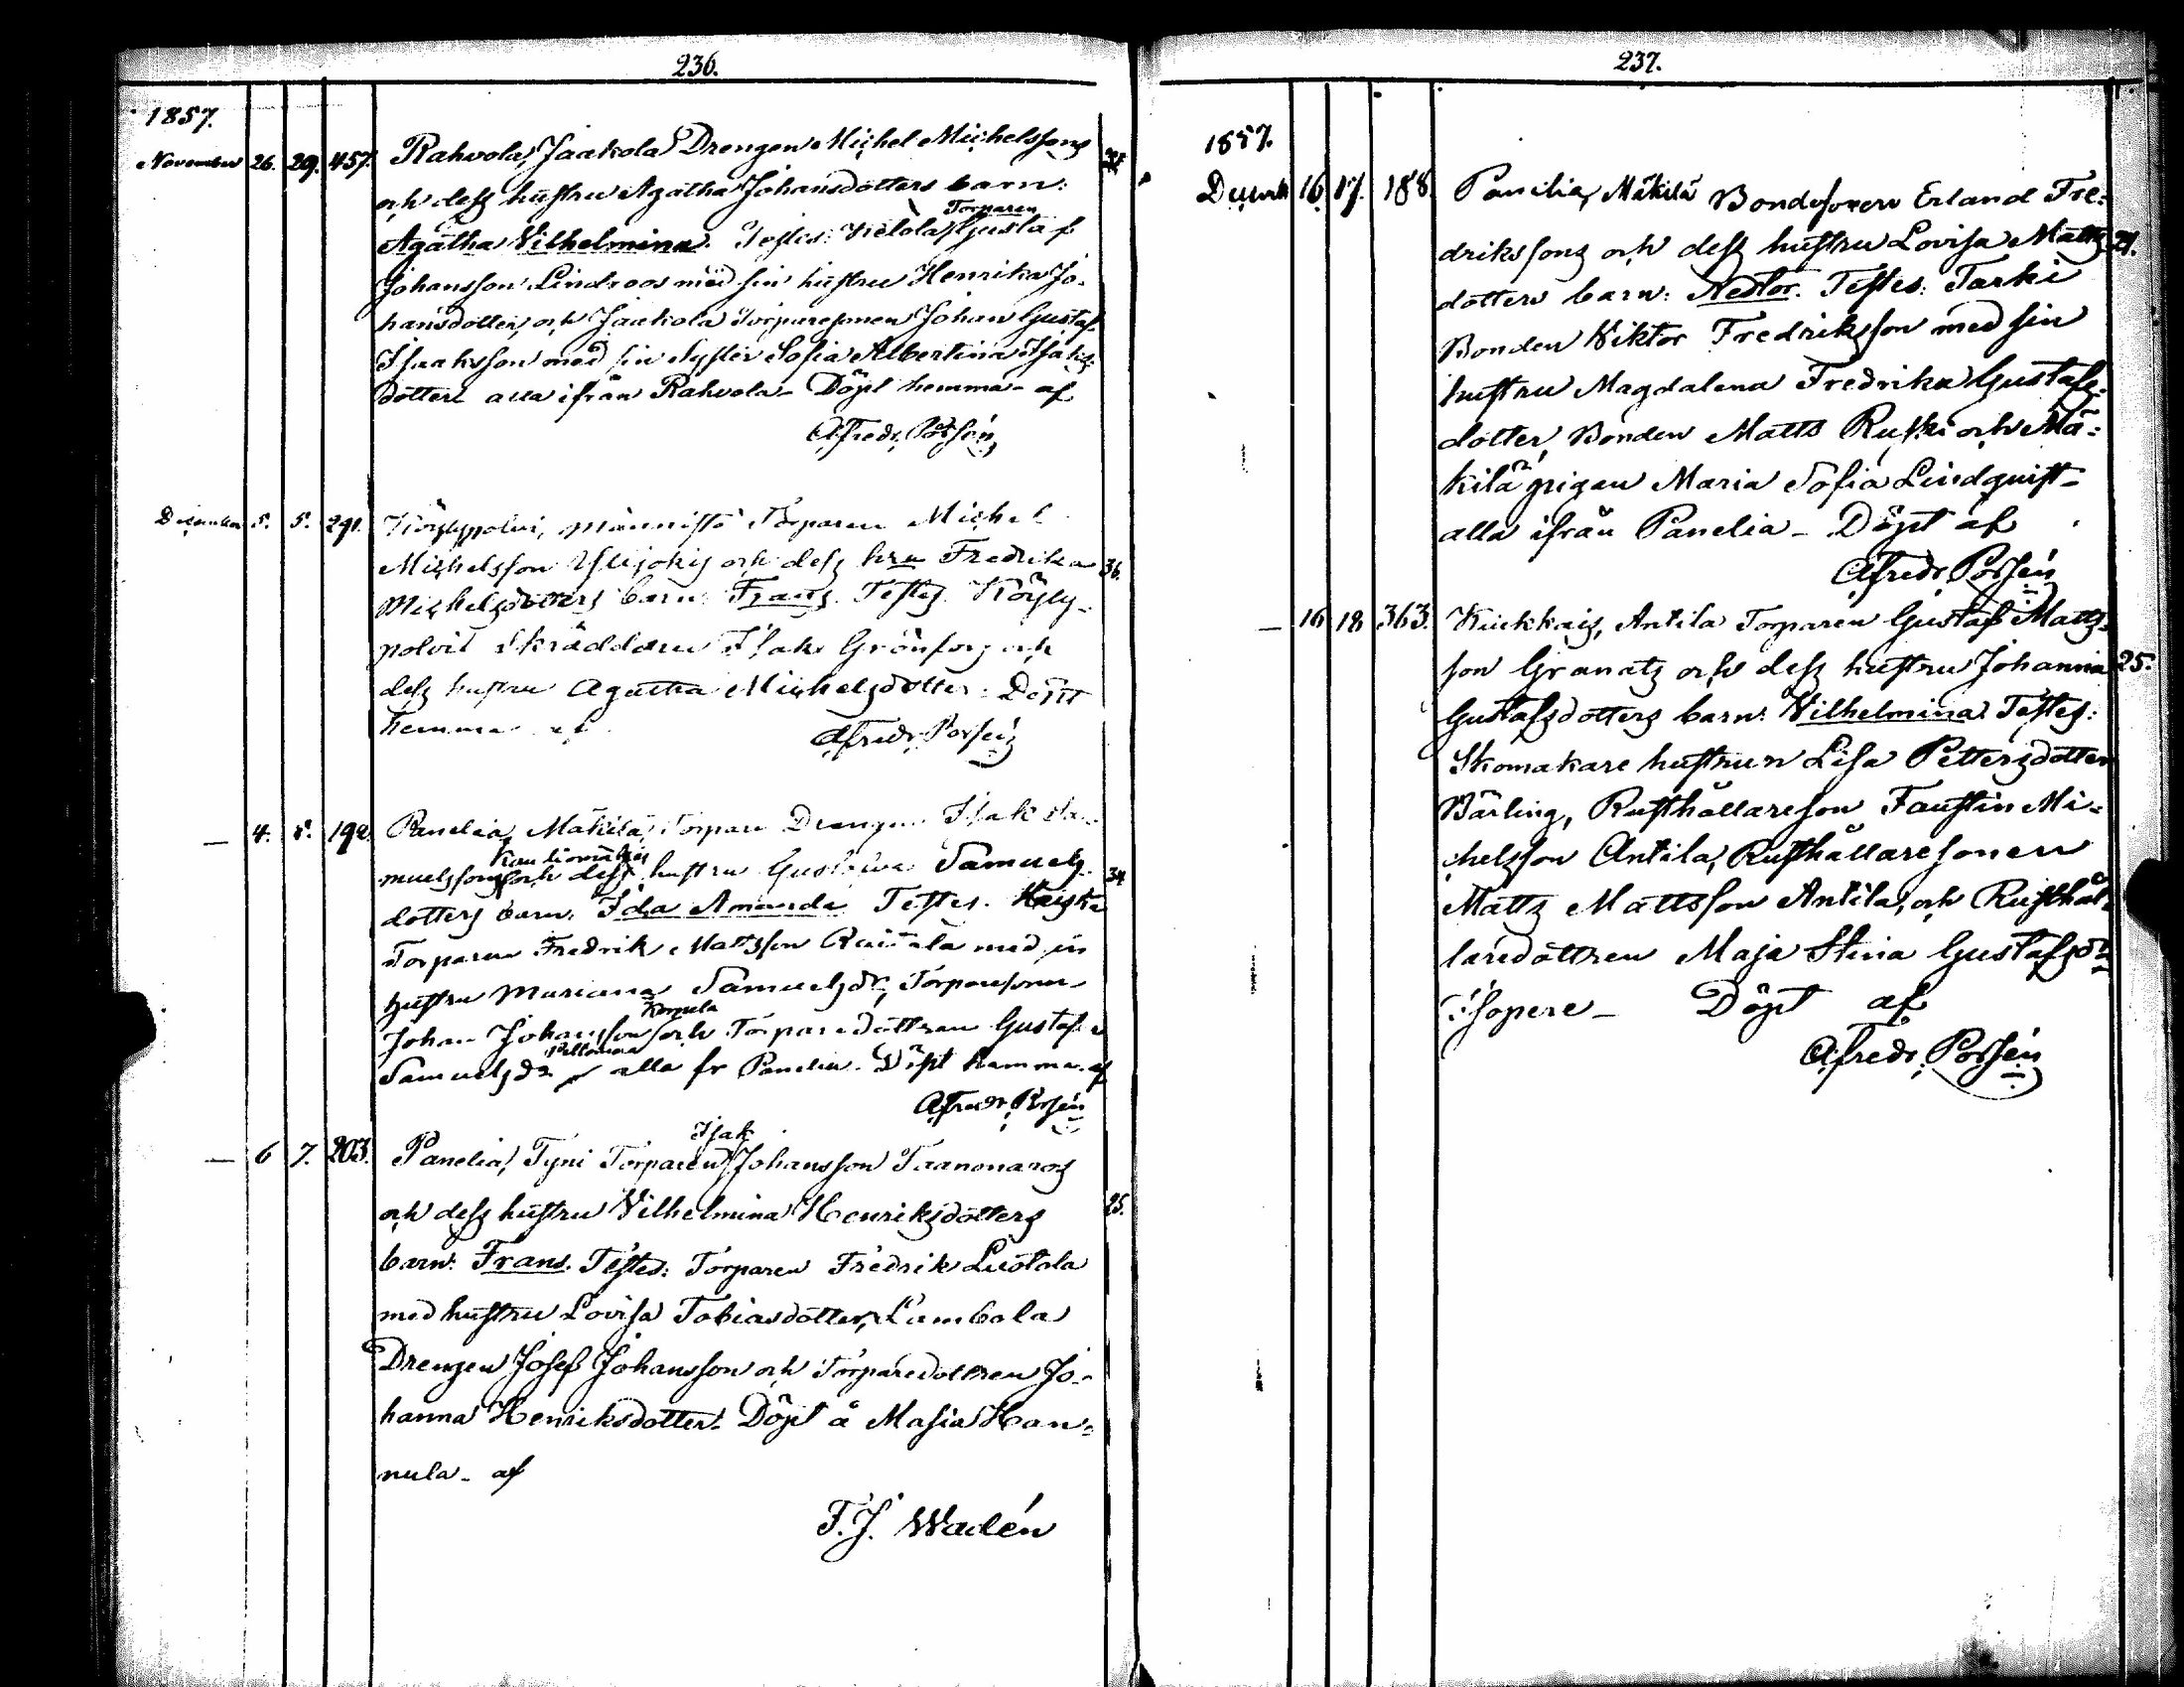 236.
1857.
November 26. 29. 457. Rahvola, Jaakola Drengen Michel Michelssons
och dess hustru Agatha Johansdotters barn:
Torparen
Agatha Vilhelmina. Testes: Kielola Gustaf
Johansson Lindroos med sin hustru Henrika Jo-
hansdotter, och Jaakola Torparesonen Johan Gustaf
Isaaksson med sin syster Sofia Albertina Isaks-
dotter alla ifrån Rahvola - Döpt hemma - af
Alfredr. Porsén
December 5. 5. 291. Köylypolvi, Männistö Torparen Michel
Michelsson Ylisjokis och dess hru Fredrika 36.
Michelsdotters barn: Frans. Testes. Köyly-
polvis Skräddaren Isak Grönfors och
dess hustru Agatha Michelsdotter. Döpt
hemma af Alfredr. Porsén
— 4. 8. 192. Panelia, Mäkilä, Torpare Drengen Isak Sa-
muelssons och dess hustru Gustava Samuels- 34
dotters barn: Ida Amanda Testes.
Torparen Fredrik Mattsson med sin
hustru Mariana Samuelsdr, Torparesonen
Korpela
Johan Johansson och Torparedottren Gustafva
Samuelsdr alla fr Panelia. Döpt hemma. af
Alfredr. Porsén
Isak
— 6 7. 203. Panelia, Tyni Torparen Johansson Taanonaros
och dess hustru Vilhelmina Henriksdotters 25.
barn: Frans. Testes: Torparen Fredrik Liustala
med hustru Lovisa Tobiasdotter, Lambola
Drengen Josef Johansson och Torparedottren Jo-
hanna Henriksdotter. Döpt å Masia Han-
nula - af
F. J. Wadén
237.
1857.
December 16. 17. 188. Panilia, Mäkilä Bondesonen Erland Fre-
drikssons och dess hustru Lovisa Matts 21.
dotters barn: Nestor. Testes: Tarki
Bonden Viktor Fredriksson med sin
hustru Magdalena Fredrika Gustafs-
dotter, Bonden Matts Ruski och Mä-
kilä pigan Maria Sofia Lindquist -
alla ifrån Panelia - Döpt af
Alfredr. Porsén
— 16 18 363. Kiukkais, Antila Torparen Gustaf Matts-
son Granats och dess hustru Johanna 25.
Gustafsdotters barn: Vilhelmina. Testes:
Skomakare hustrun Lisa Pettersdotter
Bärling, Rusthållareson Faustin Mi-
chelsson Antila, Rusthållaresonen
Matts Mattsson Antila, och Rusthål-
laredottren Maja Stina Gustafsdr
Isopere - Döpt af
Alfredr. Porsén